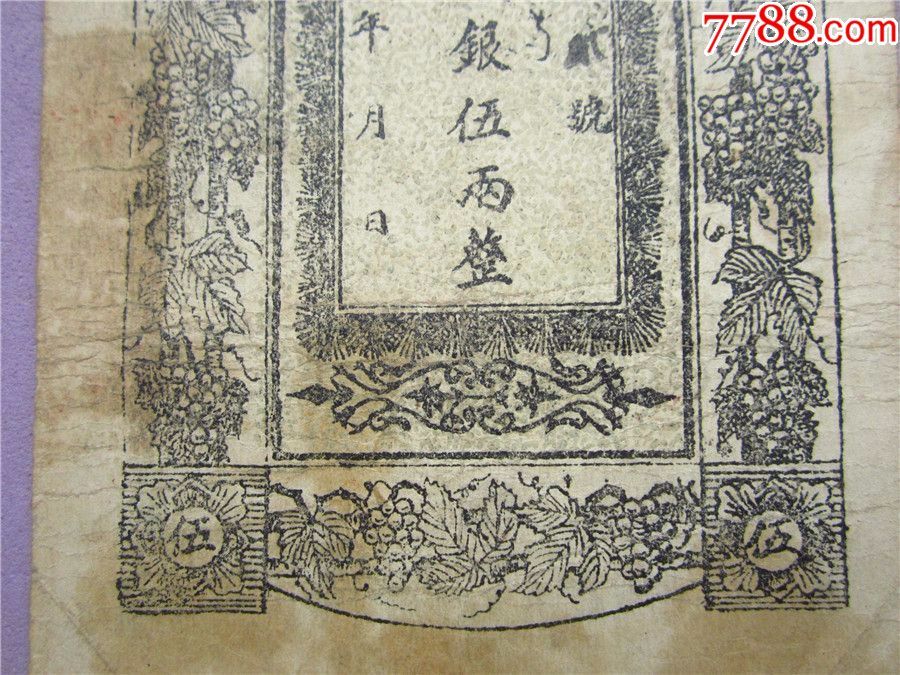 7788.com
貳號
銀伍兩整
年月日
伍
伍